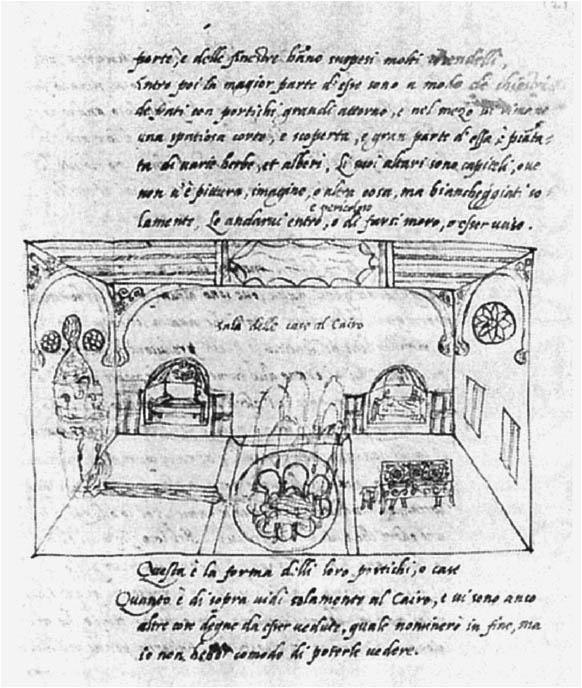 porte, e delle finestre hano suspesi molti
intro poi la magior parte d'esse sono a modo de
de frati con portichi grandi attorno, e nel mezo
una spatiosa corte, e scoperta, e gran parte d'essa, è
ta di varie herbe, et alberi, Li suoi altari sono
non v'è pittura, imagine, o altra cosa, ma biancheggiati so
e pericoloso
lamente, Lo andarvi entro, o di farsi moro, o esser
Sala delle case al Cairo
Questa è la forma delli loro portichi, o case
Quanto è di sopra vidi solamente al Cairo, e vi sono anco
altre cose degne da esser vedute, quale nominerò in fine, ma
io non comodo di poterle vedere.